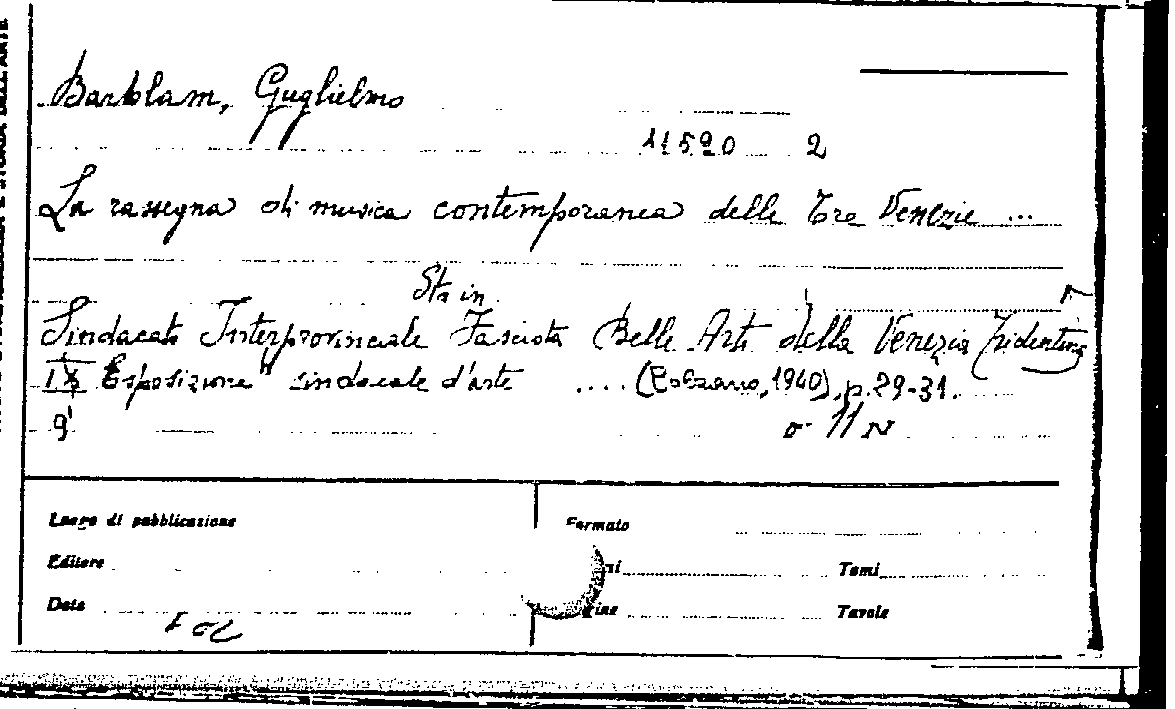 Barblam, Guglielmo
11520 2
La rassegna di musica contemporanea delle Tre Venezie ...
Sta in
Sindacato Interprovinciale Fascista Belle Arti della Venezia Tridentina
IX Esposizione sindacale d'arte .... (Bolzano, 1940), p. 29-31.
9
11 N
Luogo di pubblicazione
Formato
Editore
Tomi
Data
Tavole